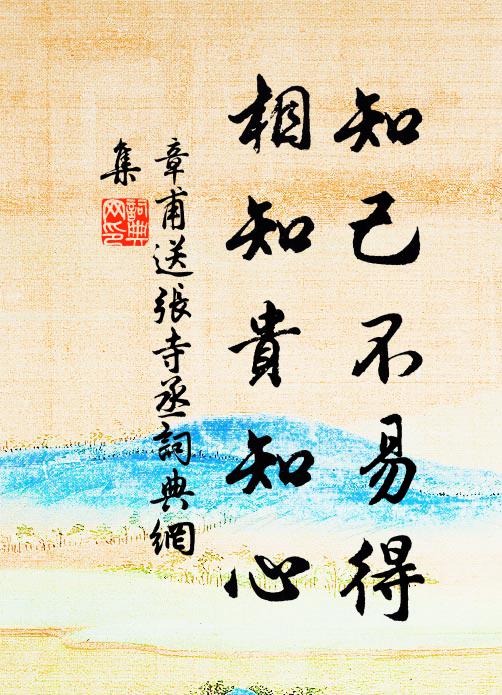 知己不易得
相知貴知心
章甫送張寺丞詞典網
集
詞典
网印